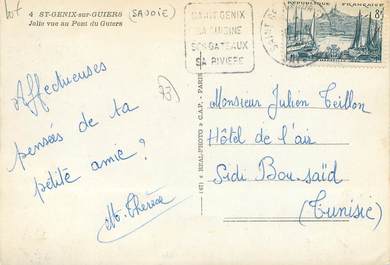 lot
4 ST-GENIX-sur-GUIERS (SAVOIE)
Jolie vue au Pont du Guiers
SAINT GENIX
SA CUISINE
SES GATEAUX
SA RIVIERE
REPUBLIQUE FRANÇAISE
8F
MARSEILLE
73
Affectueuses
pensées de ta
petite amie ?
M. Thérèse
(47) « REAL-PHOTO » C.A.P. - PARIS
Monsieur Julien Teillon
Hôtel de l'air
Sidi Bou-saïd
(Tunisie)